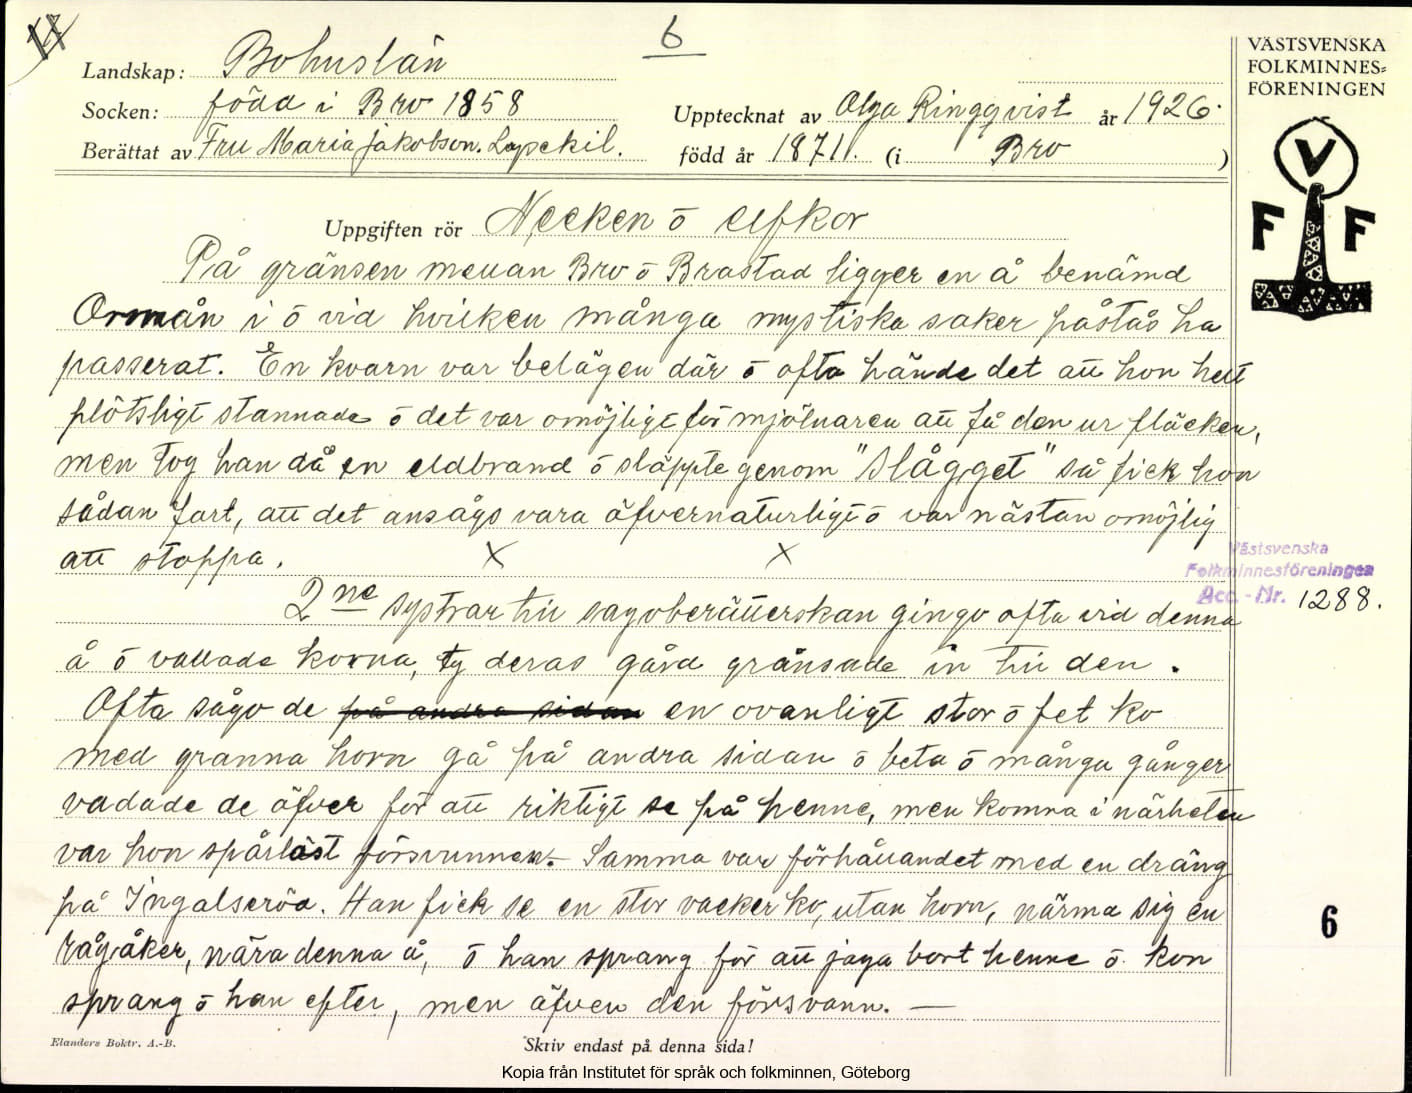 17
6
Landskap: Bohuslän
Socken: född i Bro 1858
Berättat av Fru Maria Jakobson. Lysekil.
Upptecknat av Olga Ringqvist år 1926.
född år 1871. (i Bro )
VÄSTSVENSKA
FOLKMINNES=
FÖRENINGEN
V
F F
Uppgiften rör Necken ō elfkor
På gränsen mellan Bro ō Brastad ligger en å benämd
Ormån i ō vid hvilken många mystiska saker påstås ha
passerat. En kvarn var belägen där ō ofta hände det att hon helt
plötsligt stannade ō det var omöjligt för mjölnaren att få den ur fläcken,
men tog han då en eldbrand ō släppte genom "slågget" så fick hon
sådan fart, att det ansågs vara äfvernaturligt ō var nästan omöjlig
att stoppa. x x
2ne systrar till sagoberätterskan gingo ofta vid denna
å ō vallade korna, ty deras gård gränsade in till den.
Ofta sågo de på andra sidan en ovanligt stor ō fet ko
med granna horn gå på andra sidan ō beta ō många gånger
vadade de äfver för att riktigt se på henne, men komna i närheten
var hon spårlöst försvunnen. — Samma var förhållandet med en dräng
på Ingalseröd. Han fick se en stor vacker ko, utan horn, närma sig en
rågåker, nära denna å, ō han sprang för att jaga bort henne ō kon
sprang ō han efter, men äfven den försvann. —
Västsvenska
Folkminnesföreningen
Acc. - Nr. 1288.
6
Elanders Boktr. A.-B.
Skriv endast på denna sida!
Kopia från Institutet för språk och folkminnen, Göteborg